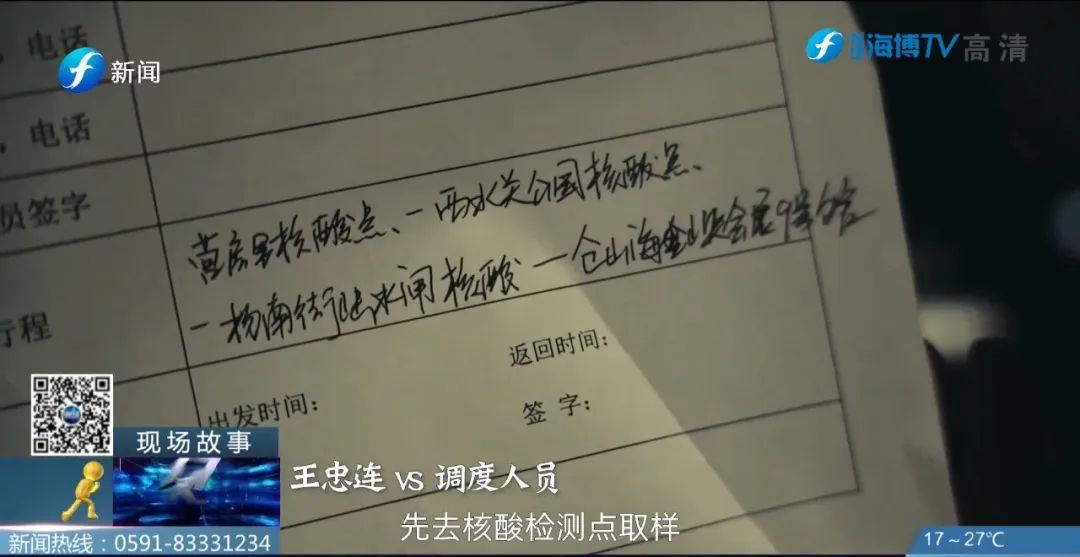 ，电话
新闻
海博TV高清
，电话
员签字
营房里核酸点、一西水关公园核酸点、
一杨南街 水闸核酸一仓山海 会展9号馆
行程
返回时间：
出发时间：
签 字：
现场故事
王忠连 vs 调度人员
先去核酸检测点取样
新闻热线：0591-83331234
17～27℃